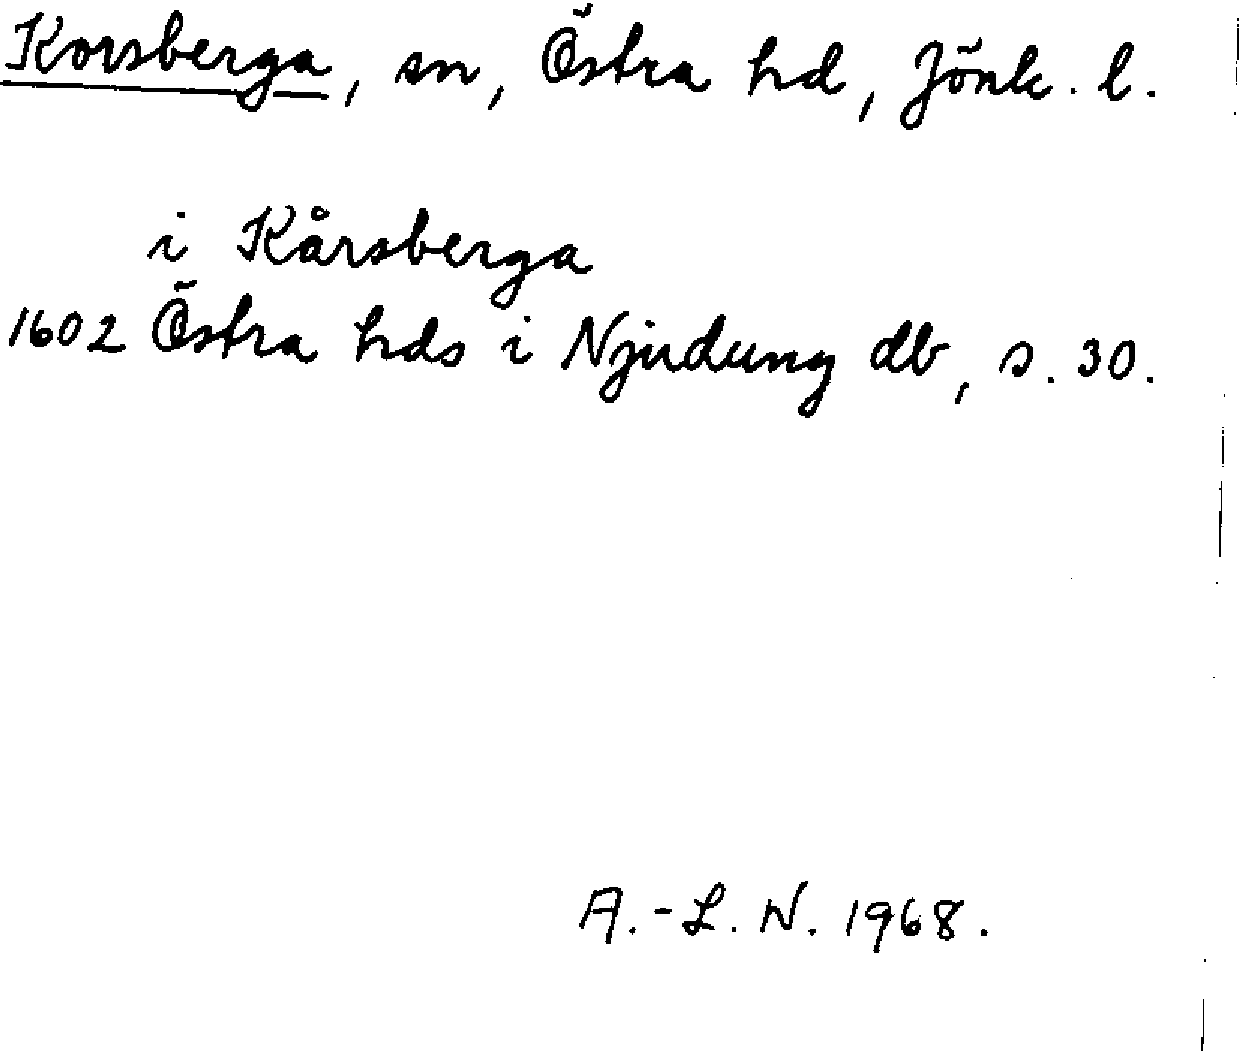 Korsberga, sn, Östra hd, Jönk. l.
i Kårsberga
1602 Östra hds i Njudung db, s. 30.
A.-L. N. 1968.